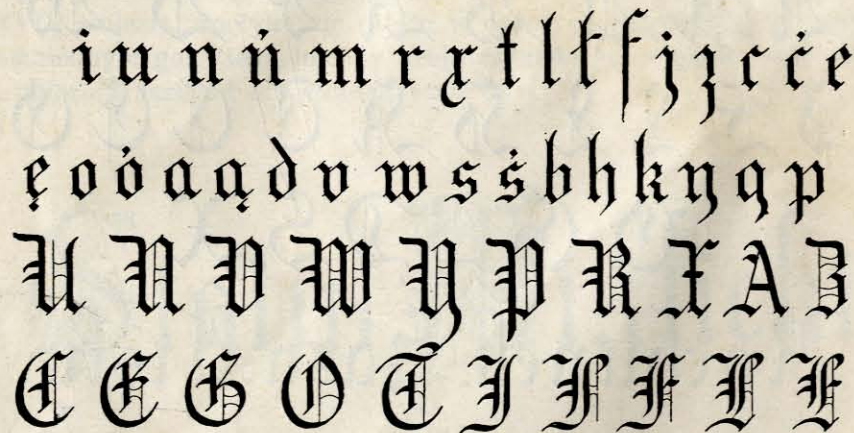 i u n ń m r x t l ł f j z c ć e
ę o ó a ą d v w s ś b h k y q p
U N V W Y P R X A B
C E G O T I F F L Ł